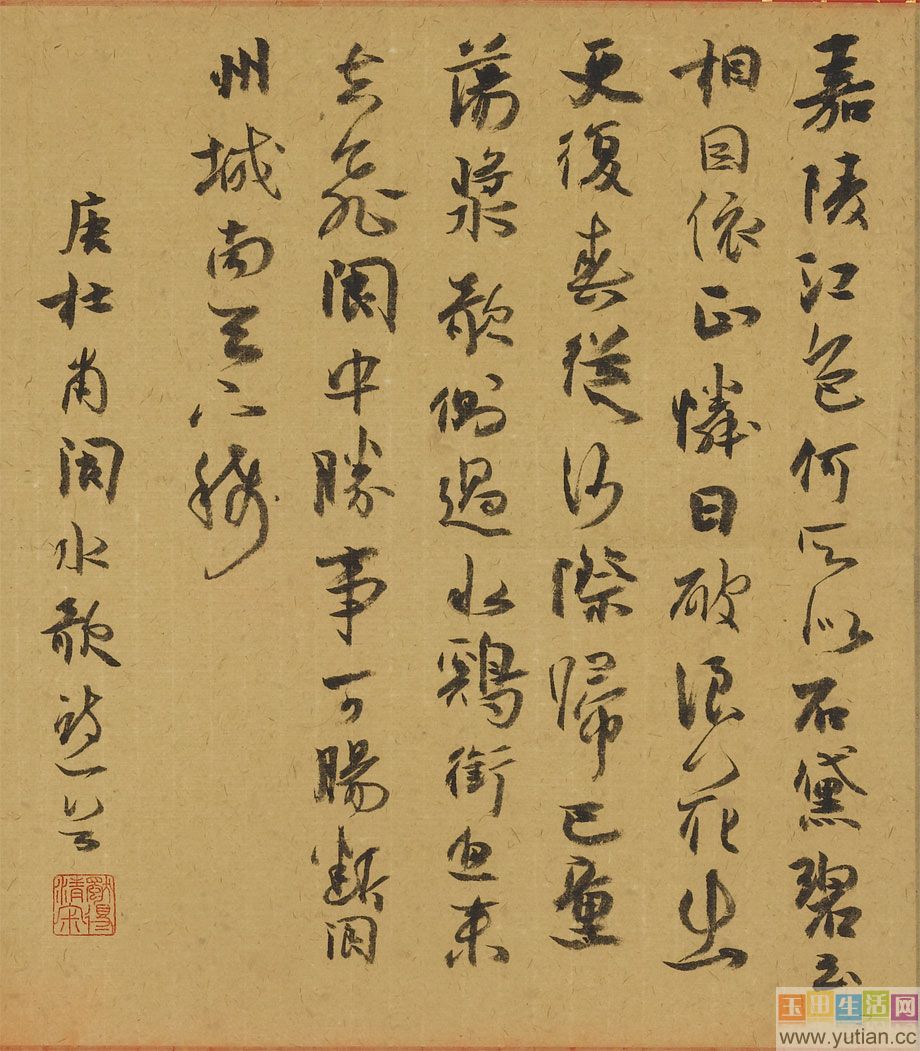 嘉陵江色何所似石黛碧玉
相因依正憐日破浪花出
更復春從沙際歸巴童
蕩槳欹側過水鷄銜魚來
去飛閬中勝事可腸斷閬
州城南天下稀
唐杜甫閬水歌
玉田生活网
www.yutian.cc